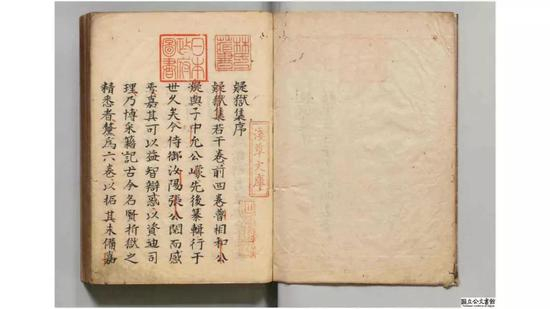 疑獄集序
疑獄集若干卷前四卷晉相和公
凝與子中允公㠓先後纂輯行于
世久矣今侍御汝陽張公閱而感
焉嘉其可以益智辯惑以資迪司
理乃博采籍記古今名賢折獄之
精悉者釐爲六卷以拓其未備嘉
林氏藏書
日本政府圖書
淺草文庫
国立公文書館